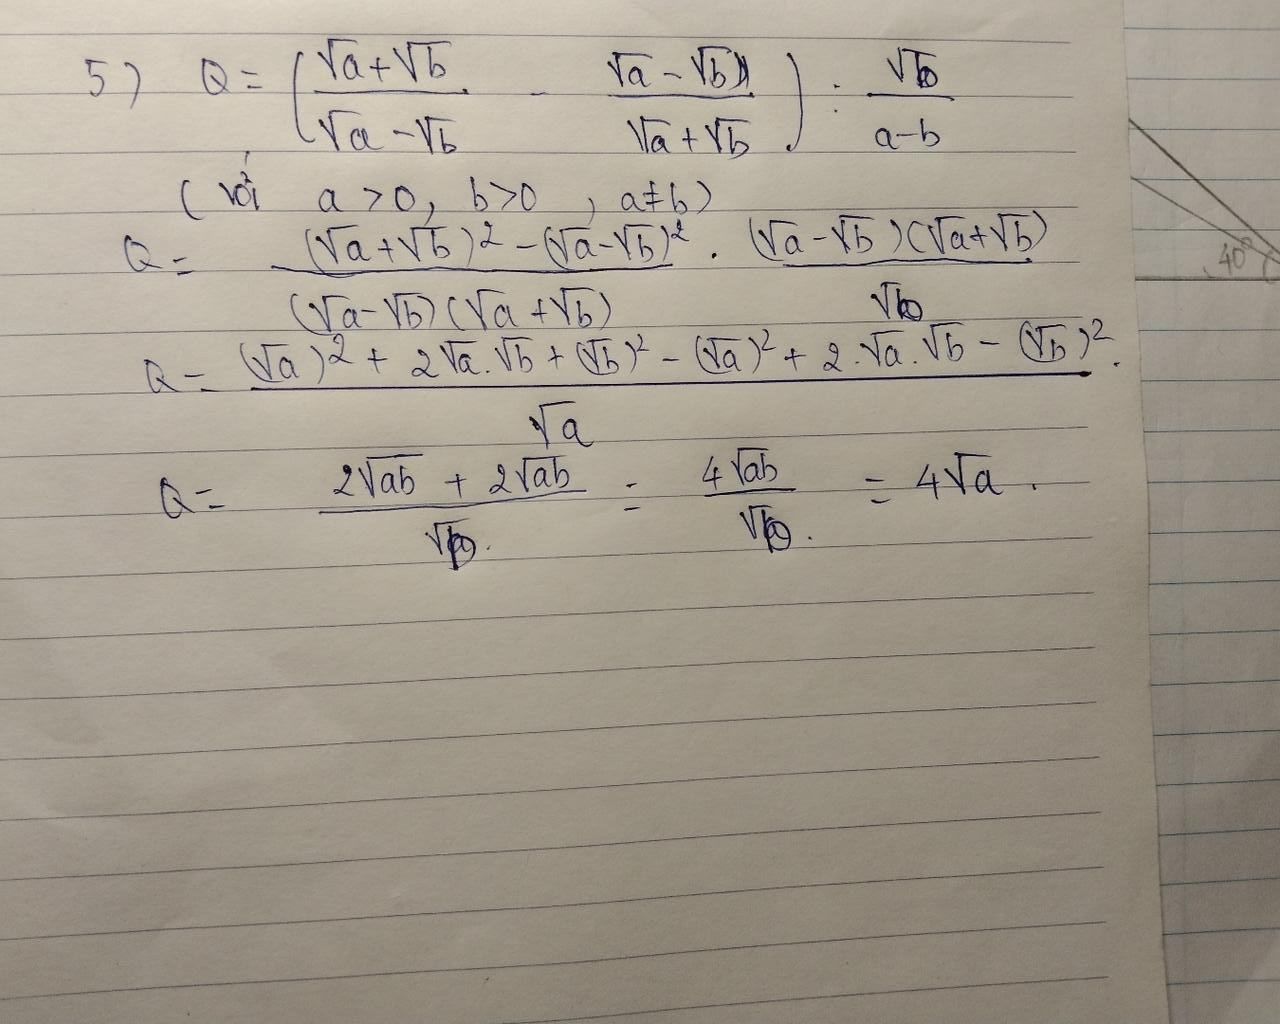 5) Q = ( (√a+√b)/(√a-√b) - (√a-√b)/(√a+√b) ) : √b/(a-b)
(với a>0, b>0, a≠b)
Q = ((√a+√b)² - (√a-√b)²)/((√a-√b)(√a+√b)) . ((√a-√b)(√a+√b))/√b
Q = ((√a)² + 2√a.√b + (√b)² - (√a)² + 2.√a.√b - (√b)²)/√a .
Q = (2√ab + 2√ab)/√b. = 4√ab/√b. = 4√a.
40°